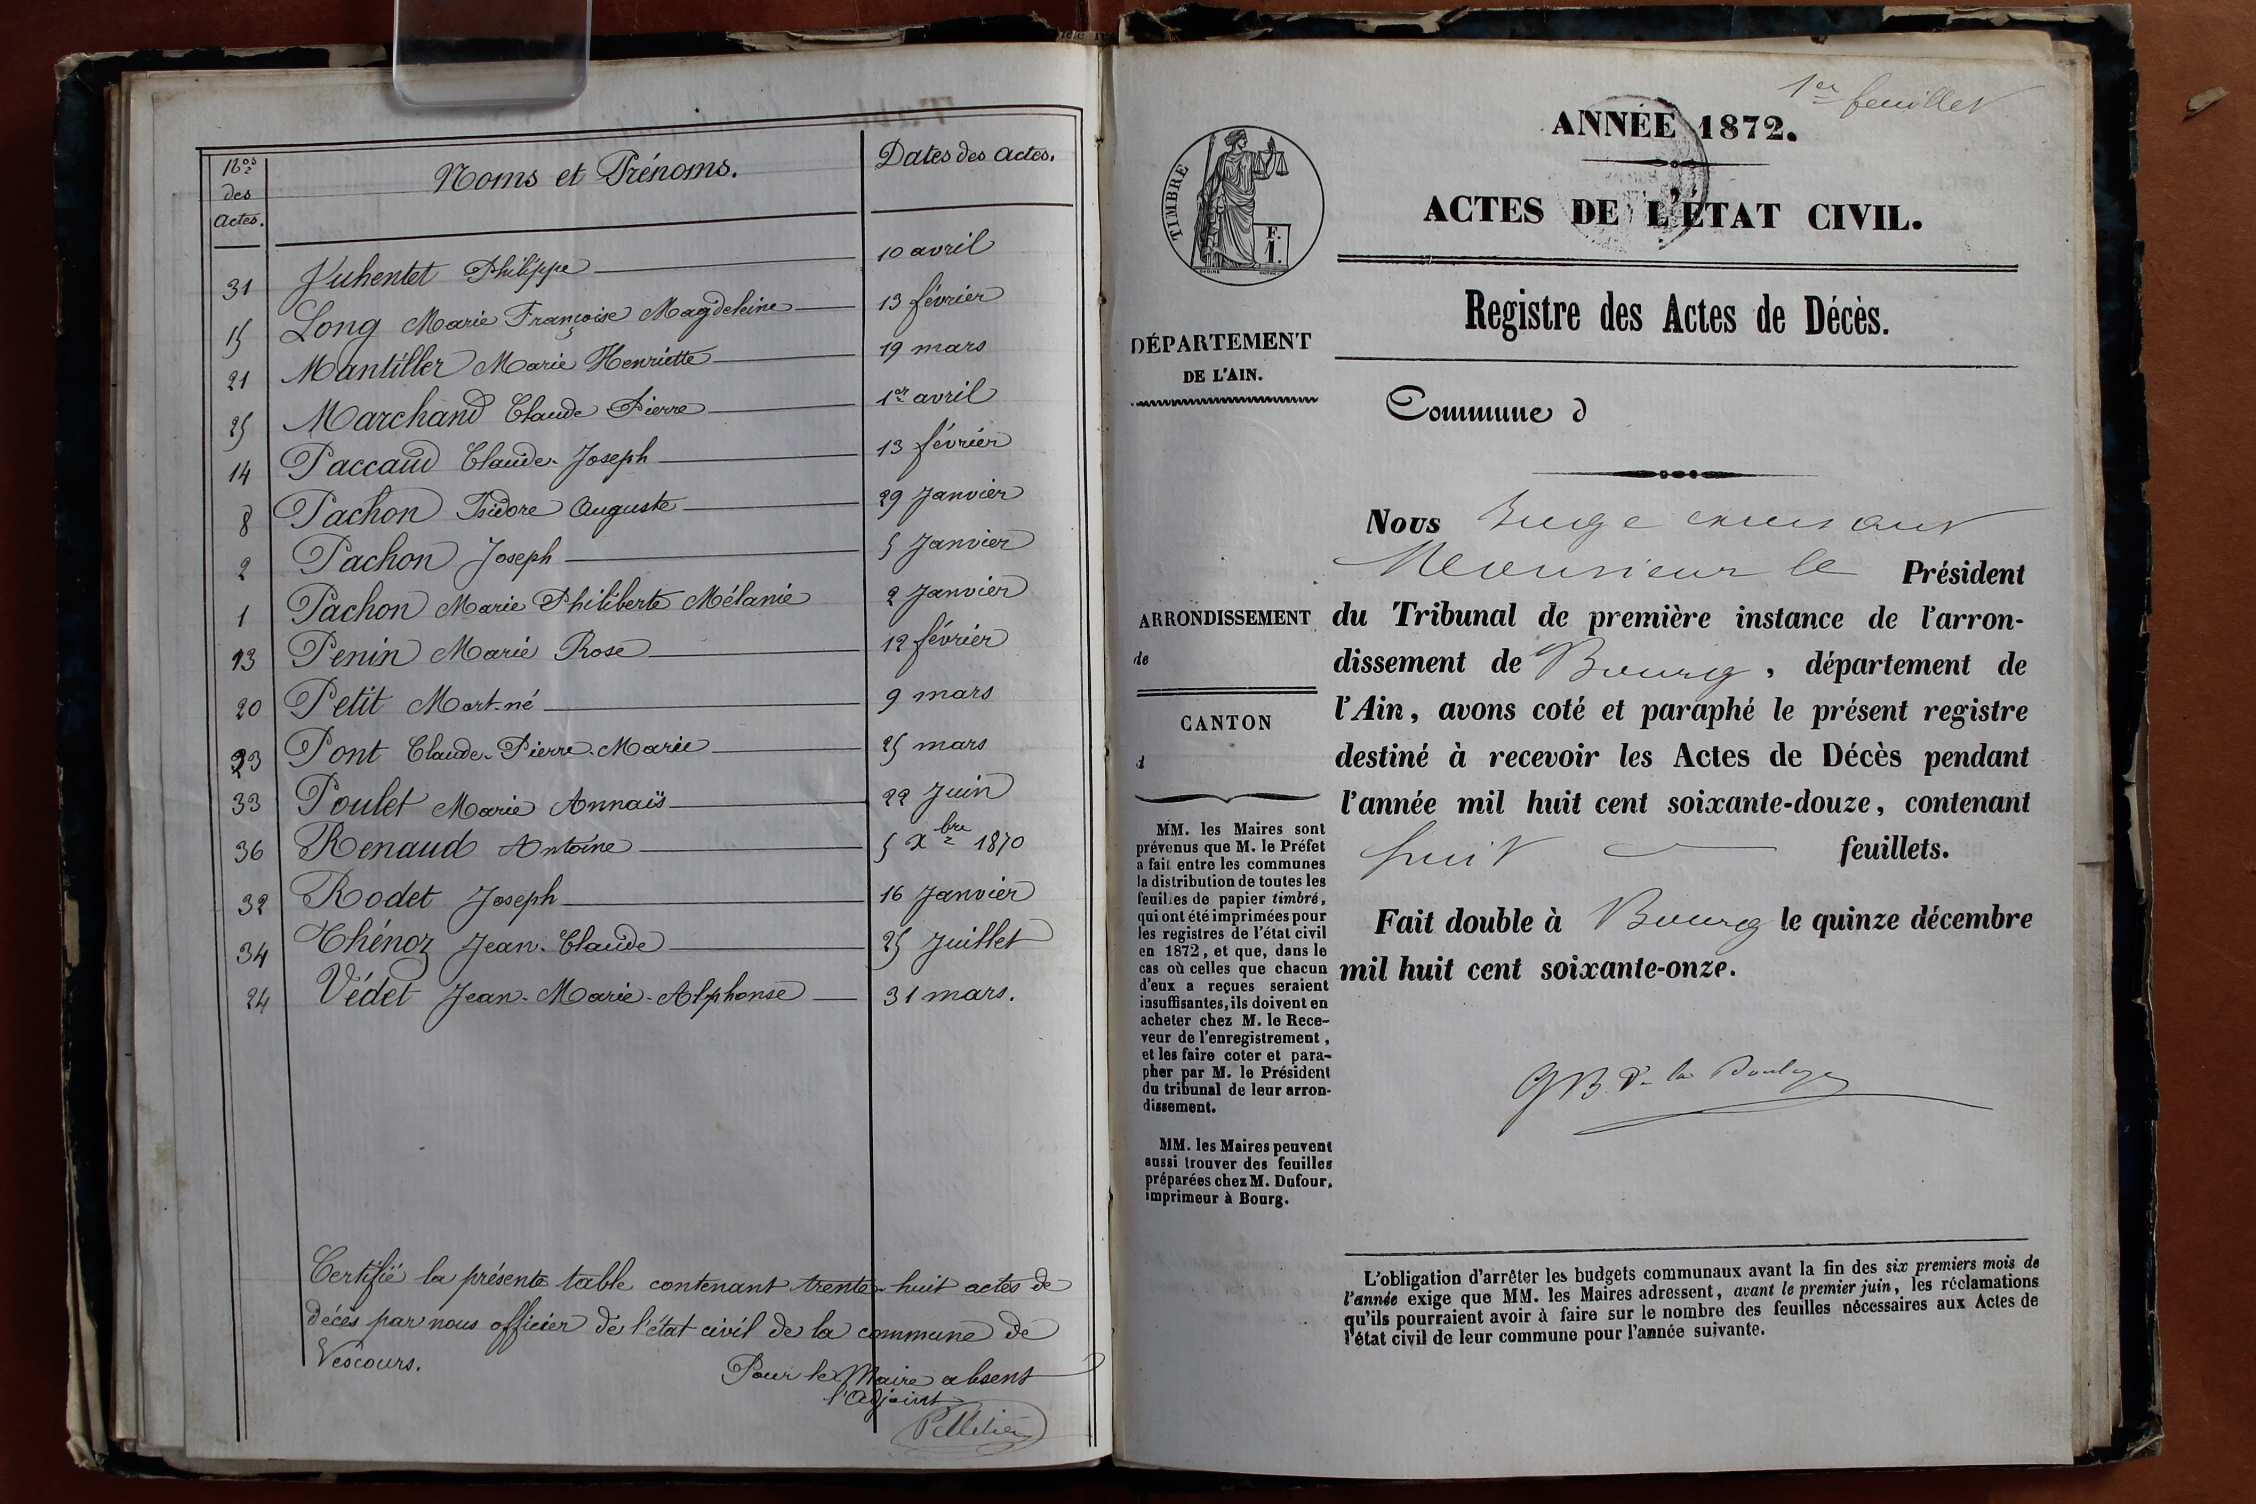 Nos des Actes. Noms et Prénoms. Dates des Actes.
31 Juhentet Philippe 10 avril
15 Long Marie Françoise Magdeleine 13 février
21 Mantiller Marie Henriette 19 mars
25 Marchand Claude Pierre 1er avril
14 Paccaud Claude-Joseph 13 février
8 Pachon Isidore Auguste 29 Janvier
2 Pachon Joseph 5 Janvier
1 Pachon Marie Philiberte Mélanie 2 Janvier
13 Penin Marie Rose 12 février
20 Petit Mort-né 9 mars
23 Pont Claude-Pierre-Marie 25 mars
33 Poulet Marie Annaïs 22 Juin
36 Renaud Antoine 5 Xbre 1870
32 Rodet Joseph 16 Janvier
34 Thénoz Jean-Claude 25 Juillet
24 Védet Jean-Marie-Alphonse 31 mars.
Certifié la présente table contenant trente-huit actes de
décès par nous officier de l'état civil de la commune de
Vescours.
Pour le Maire absent
l'Adjoint
Pelletier
1er feuillet
ANNÉE 1872.
ACTES DE L'ÉTAT CIVIL.
Registre des Actes de Décès.
TIMBRE
F.
1.
DÉPARTEMENT
DE L'AIN.
Commune d
ARRONDISSEMENT
de
CANTON
d
MM. les Maires sont
prévenus que M. le Préfet
a fait entre les communes
la distribution de toutes les
feuilles de papier timbré,
qui ont été imprimées pour
les registres de l'état civil
en 1872, et que, dans le
cas où celles que chacun
d'eux a reçues seraient
insuffisantes, ils doivent en
acheter chez M. le Rece-
veur de l'enregistrement,
et les faire coter et para-
pher par M. le Président
du tribunal de leur arron-
dissement.
MM. les Maires peuvent
aussi trouver des feuilles
préparées chez M. Dufour,
imprimeur à Bourg.
Nous Juge exerçant
Monsieur le Président
du Tribunal de première instance de l'arron-
dissement de Bourg, département de
l'Ain, avons coté et paraphé le présent registre
destiné à recevoir les Actes de Décès pendant
l'année mil huit cent soixante-douze, contenant
huit feuillets.
Fait double à Bourg le quinze décembre
mil huit cent soixante-onze.
L'obligation d'arrêter les budgets communaux avant la fin des six premiers mois de
l'année exige que MM. les Maires adressent, avant le premier juin, les réclamations
qu'ils pourraient avoir à faire sur le nombre des feuilles nécessaires aux Actes de
l'état civil de leur commune pour l'année suivante.